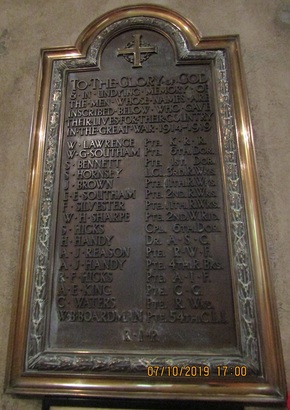 TO THE GLORY OF GOD
& IN UNDYING MEMORY OF
THE MEN WHOSE NAMES
INSCRIBED BELOW WHO GAVE
THEIR LIVES FOR THEIR COUNTRY
IN THE GREAT WAR 1914-1919
W. LAWRENCE PTE.
W. G. SOUTHAM PTE.
BENNETT
HORNSEY
BROWN PTE.
E. SOUTHAM PTE.
TUSTER PTE.
W. H. SHARPE PTE.
S. HICKS CPL. 6TH DOR.
H. HANDY DR. A. S. C.
A. J. REASON PTE. R. W. F.
A. J. HANDY PTE.
F. HICKS PTE.
A. E. KING PTE. C. G.
G. WATERS PTE. R. WAR.
W. B. BOARDMAN PTE. 54TH
R. I. P.
07/10/2019 17:00